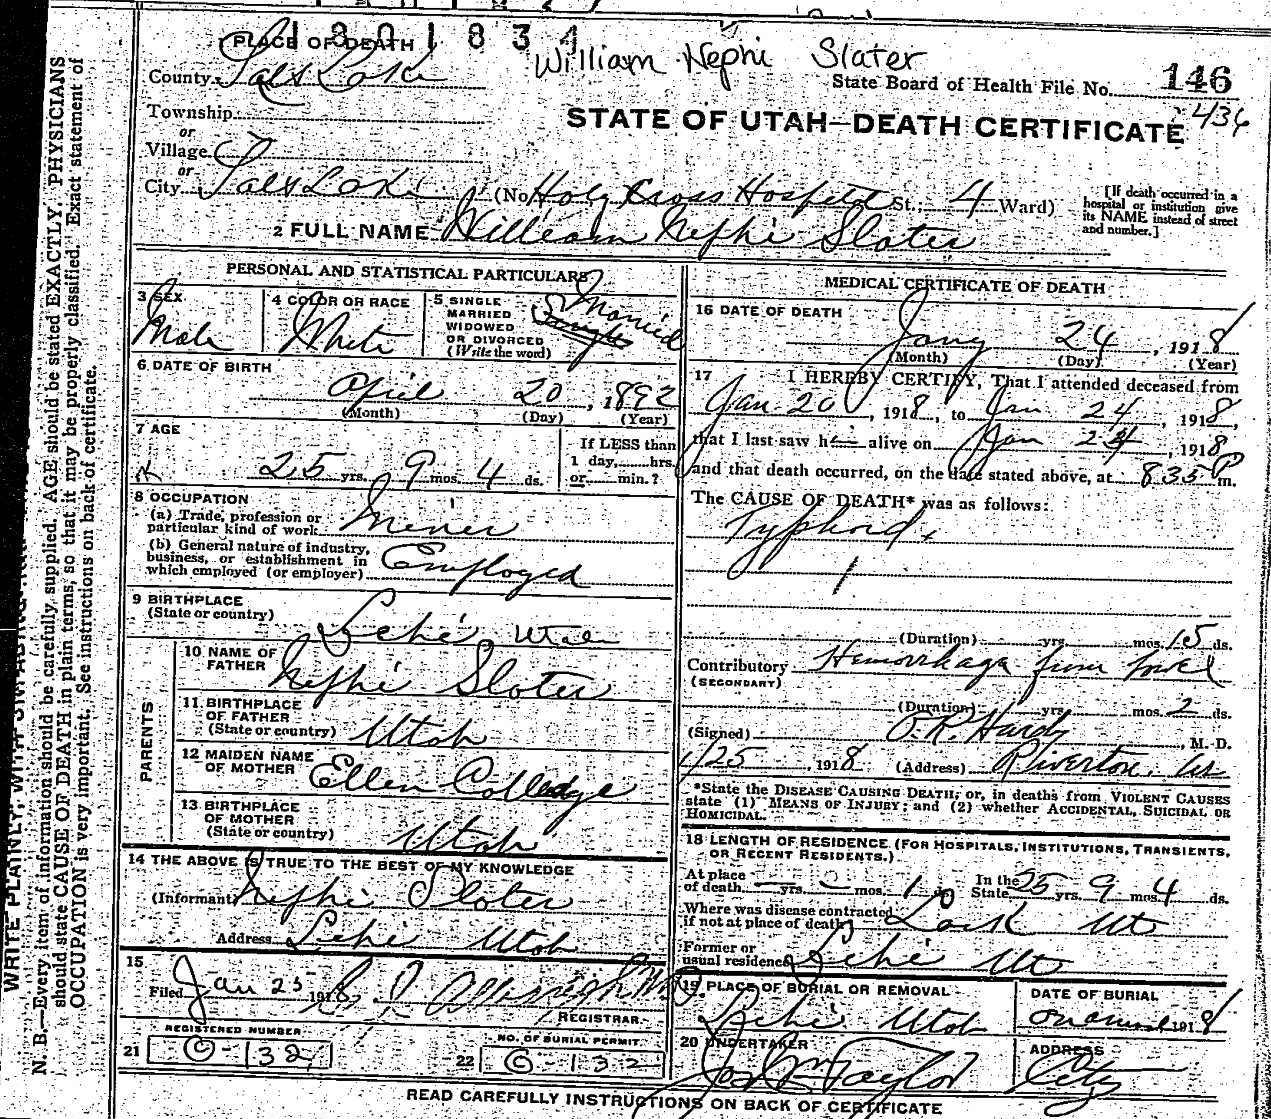 1801834
William Nephi Slater
PLACE OF DEATH
County Salt Lake
State Board of Health File No. 146
Township
4/36
or
STATE OF UTAH—DEATH CERTIFICATE
Village
or
City Salt Lake (No Holy Cross Hospital St.; 4 Ward)
[If death occurred in a
hospital or institution give
its NAME instead of street
and number.]
2 FULL NAME William Nephi Slater
PERSONAL AND STATISTICAL PARTICULARS
3 SEX
Male
4 COLOR OR RACE
White
5 SINGLE
MARRIED
WIDOWED
OR DIVORCED
(Write the word)
Married
6 DATE OF BIRTH
April 20, 1892
(Month) (Day) (Year)
7 AGE
25 yrs. 9 mos. 4 ds.
If LESS than
1 day,......hrs.
or......min.?
8 OCCUPATION
(a) Trade, profession or
particular kind of work Miner
(b) General nature of industry,
business, or establishment in
which employed (or employer) Employed
9 BIRTHPLACE
(State or country) Lehi Utah
PARENTS
10 NAME OF
FATHER Nephi Slater
11 BIRTHPLACE
OF FATHER
(State or country) Utah
12 MAIDEN NAME
OF MOTHER Ellen Colledge
13 BIRTHPLACE
OF MOTHER
(State or country) Utah
14 THE ABOVE IS TRUE TO THE BEST OF MY KNOWLEDGE
(Informant) Nephi Slater
Address Lehi Utah
15
Filed Jan 25 1918
REGISTRAR.
REGISTERED NUMBER
21 O-132
NO. OF BURIAL PERMIT
22 G-132
MEDICAL CERTIFICATE OF DEATH
16 DATE OF DEATH
Jany 24, 1918
(Month) (Day) (Year)
17 I HEREBY CERTIFY, That I attended deceased from
Jan 20, 1918, to Jan 24, 1918,
that I last saw h alive on Jan 24, 1918
and that death occurred, on the date stated above, at 835 P m.
The CAUSE OF DEATH* was as follows:
Typhoid
(Duration) yrs. mos. 15 ds.
Contributory Hemorrhage from bowel
(SECONDARY)
(Duration) yrs. mos. 2 ds.
(Signed) O.R. Hardy, M. D.
1/25, 1918 (Address) Riverton. Ut
*State the DISEASE CAUSING DEATH; or, in deaths from VIOLENT CAUSES
state (1) MEANS OF INJURY; and (2) whether ACCIDENTAL, SUICIDAL OR
HOMICIDAL.
18 LENGTH OF RESIDENCE (FOR HOSPITALS, INSTITUTIONS, TRANSIENTS,
OR RECENT RESIDENTS.)
At place
of death yrs. mos. 1
In the
State 25 yrs. 9 mos. 4 ds.
Where was disease contracted
if not at place of death? Lark Ut
Former or
usual residence Lehi Ut
19 PLACE OF BURIAL OR REMOVAL
Lehi Utah
DATE OF BURIAL
On arrival 1918
20 UNDERTAKER
Taylor
ADDRESS
City
READ CAREFULLY INSTRUCTIONS ON BACK OF CERTIFICATE
N. B.—Every item of information should be carefully supplied. AGE should be stated EXACTLY. PHYSICIANS
should state CAUSE OF DEATH in plain terms, so that it may be properly classified. Exact statement of
OCCUPATION is very important. See instructions on back of certificate.
WRITE PLAINLY, WITH